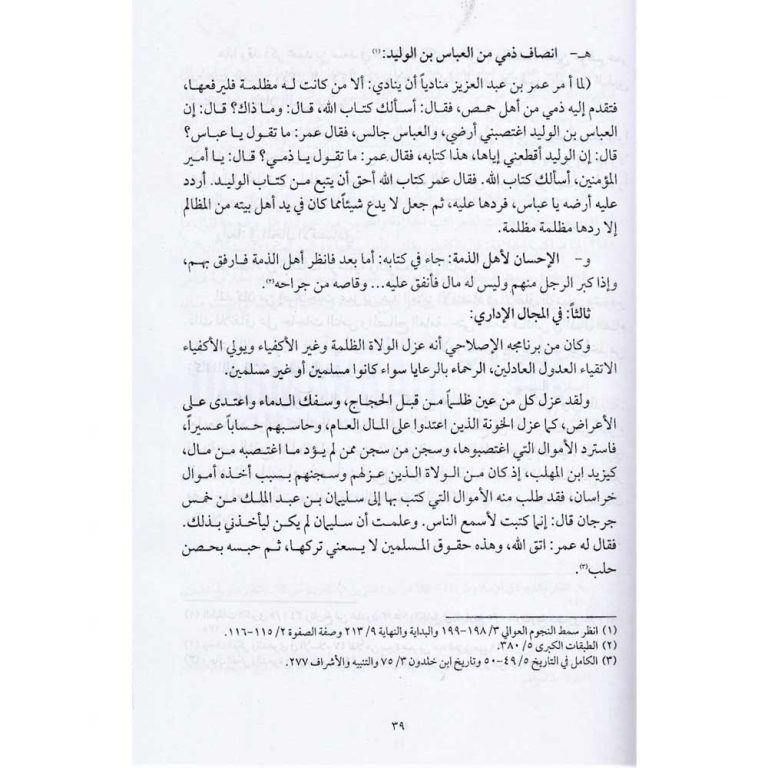 هـ- انصاف ذمي من العباس بن الوليد:(١)
(لما أمر عمر بن عبد العزيز منادياً أن ينادي: ألا من كانت له مظلمة فليرفعها،
فتقدم إليه ذمي من أهل حمص، فقال: أسألك كتاب الله، قال: وما ذاك؟ قال: إن
العباس بن الوليد اغتصبني أرضي، والعباس جالس، فقال عمر: ما تقول يا عباس؟
قال: إن الوليد أقطعني إياها، هذا كتابه، فقال عمر: ما تقول يا ذمي؟ قال: يا أمير
المؤمنين، أسألك كتاب الله. فقال عمر كتاب الله أحق أن يتبع من كتاب الوليد. أردد
عليه أرضه يا عباس، فردها عليه، ثم جعل لا يدع شيئاًمما كان في يد أهل بيته من المظالم
إلا ردها مظلمة مظلمة.
و- الإحسان لأهل الذمة: جاء في كتابه: أما بعد فانظر أهل الذمة فارفق بهم،
وإذا كبر الرجل منهم وليس له مال فأنفق عليه... وقاصه من جراحه(٢).
ثالثاً: في المجال الإداري:
وكان من برنامجه الإصلاحي أنه عزل الولاة الظلمة وغير الأكفياء ويولي الأكفياء
الاتقياء العدول العادلين، الرحماء بالرعايا سواء كانوا مسلمين أو غير مسلمين.
ولقد عزل كل من عين ظلماً من قبل الحجاج، وسفك الدماء واعتدى على
الأعراض، كما عزل الخونة الذين اعتدوا على المال العام، وحاسبهم حساباً عسيراً،
فاسترد الأموال التي اغتصبوها، وسجن من سجن ممن لم يؤد ما اغتصبه من مال،
كيزيد ابن المهلب، إذ كان من الولاة الذين عزلهم وسجنهم بسبب أخذه أموال
خراسان، فقد طلب منه الأموال التي كتب بها إلى سليمان بن عبد الملك من خمس
جرجان قال: إنما كتبت لأسمع الناس. وعلمت أن سليمان لم يكن ليأخذني بذلك.
فقال له عمر: اتق الله، وهذه حقوق المسلمين لا يسعني تركها، ثم حبسه بحصن
حلب(٣).
(١) انظر سمط النجوم العوالي ٣/ ١٩٨-١٩٩ والبداية والنهاية ٩/ ٢١٣ وصفة الصفوة ٢/ ١١٥-١١٦.
(٢) الطبقات الكبرى ٥/ ٣٨٠.
(٣) الكامل في التاريخ ٥/ ٤٩-٥٠ وتاريخ ابن خلدون ٣/ ٧٥ والتنبيه والأشراف ٢٧٧.
٣٩